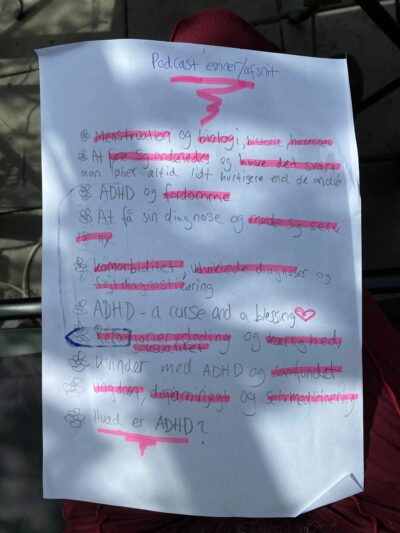 Podcast emner/afsnit
Menstruation og biologi, historie, hormoner
At føle sig anderledes og have det svært
man løber altid lidt hurtigere end de andre
ADHD og fordomme
At få sin diagnose og møde sig selv
på ny
komorbiditet, udviklede diagnoser og
fejldiagnosticering
ADHD - a curse and a blessing
og kærlighed
seksualitet
Kvinder med ADHD og samfundet
Ungdom, dopaminjagt og selvmedicinering
Hvad er ADHD?